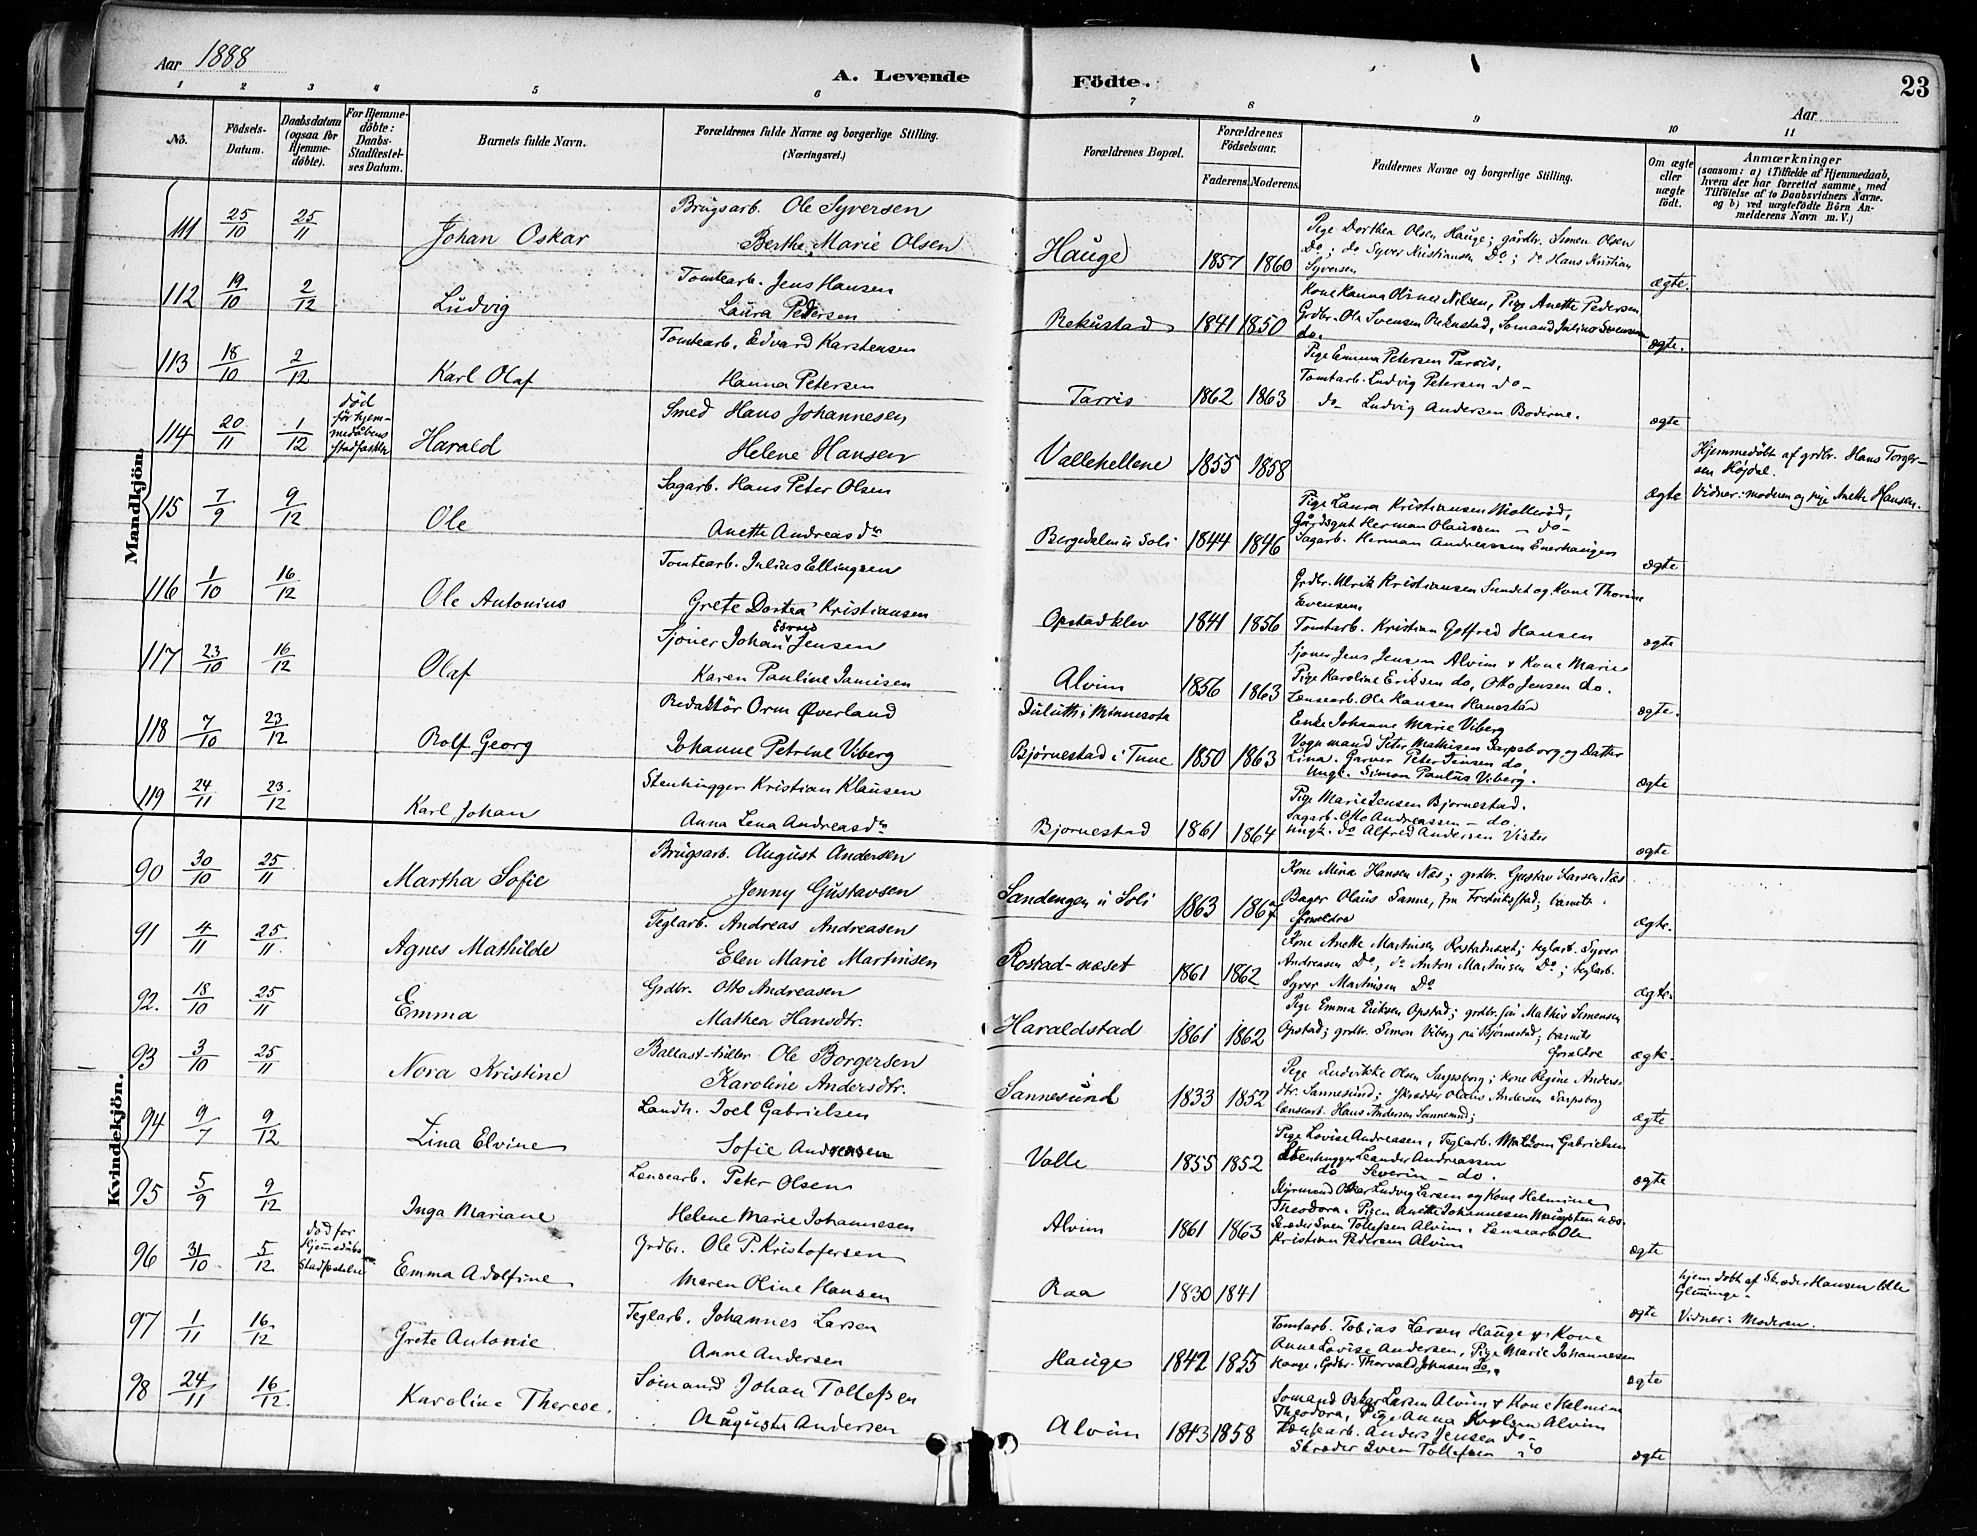 Aar 1888
A. Levende Födte.
23
Aar
1 2 3 4 5 6 7 8 9 10 11
No.
Födsels-Datum.
Daabsdatum (ogsaa for Hjemmedöbte).
For Hjemmedöbte: Daabs-Stadfæstelses Datum.
Barnets fulde Navn.
Forældrenes fulde Navne og borgerlige Stilling.
(Næringsvei.)
Forældrenes Bopæl.
Forældrenes Födselsaar.
Faderens. Moderens.
Faddernes Navne og borgerlige Stilling.
Om ægte eller uægte födt.
Anmærkninger
(saasom: a) i Tilfælde af Hjemmedaab, hvem der har forrettet samme, med Tilföielse af to Daabsvidners Navne. og b) ved uægtefödte Börn Anmelderens Navn m. V.)
Mandkjön.
111 25/10 25/11 Johan Oskar
Brugsarb. Ole Syversen
Berthe Marie Olsen
Hauge 1857 1860
Pige Dorthea Olsen Hauge; gårdbr. Simen Olsen
Do; do Syver Kristiansen Do; do Hans Kristian
Syversen
ægte.
112 19/10 2/12 Ludvig
Tomtearb. Jens Hansen
Laura Pedersen
Rekustad 1841 1850
Kone Hanna Oline Nilsen, Pige Anette Pedersen
Grdbr. Ole Svensen Rekustad, Sømand Julius Svensen
do.
ægte.
113 18/10 2/12 Karl Olaf
Tomtearb. Edvard Karstensen
Hanna Petersen
Tarris 1862 1863
Pige Emma Petersen Tarris,
Tomtarb. Ludvig Petersen do-
do- Ludvig Andersen Boderne.
ægte
114 20/11 1/12 død før hjemmedåbens stadfæstelse Harald
Smed Hans Johannesen
Helene Hansen
Vallehellene 1855 1858
ægte
Hjemmedöbt af grdbr. Hans Torgersen Höjdal.
Vidner: moderen og pige Anette Hansen.
115 7/9 9/12 Ole
Sagarb. Hans Peter Olsen
Anette Andreasdr
Bergedalen u Soli 1844 1846
Pige Laura Kristiansen Mollerød,
Gårdsgut Herman Olaussen - do-
Sagarb. Herman Andreassen Enerhaugen
ægte
116 1/10 16/12 Ole Antonius
Tomtearb. Julius Ellingsen
Grete Dortea Kristiansen
Opstadklev 1841 1856
Grdbr. Ulrik Kristiansen Sundet og Kone Thorine
Evensen
Tomtarb. Kristian Gotfred Hansen
ægte
117 23/10 16/12 Olaf
Tjöner Johan Edvard Jensen
Karen Pauline Jamisen
Alvim 1856 1863
Tjöner Jens Jensen Alvim & Kone Marie
Pige Karoline Eriksen do, Otto Jensen do.
Lensearb. Ole Hansen Hanestad
ægte.
118 7/10 23/12 Rolf Georg
Redaktör Orm Øverland
Johanne Petrine Viberg
Duluth i Minnesota
Bjørnestad i Tune 1850 1863
Enke Johanne Marie Viberg
Vognmand Peter Mathisen Sarpsborg og Datter
Lina. Garver Peter Jensen do
Ungk. Simon Paulus Viberg.
ægte
119 24/11 23/12 Karl Johan
Stenhugger Kristian Klausen
Anna Lena Andreasdr
Bjornestad 1861 1864
Pige Marie Jensen Bjornestad.
Sagarb. Otto Andreassen - do.
Ungk. do Alfred Andersen Vister
ægte
Kvindekjön.
90 30/10 25/11 Martha Sofie
Brugsarb. August Andersen
Jenny Gustavsen
Sandengen u Soli 1863 1867
Kone Mina Hansen Næs; grdbr. Gustav Larsen Næs
Bager Olaus Sanne, fra Fredrikstad; barnets
forældre
ægte.
91 4/11 25/11 Agnes Mathilde
Teglarb. Andreas Andreasen
Elen Marie Martinsen
Rostad-næset 1861 1862
Kone Anette Martinsen Rostadnæset; teglarb. Syver
Andreasen Do, do Anton Martinsen Do; teglarb.
Syver Martinsen Do
ægte.
92. 18/10 25/11 Emma
Grdbr. Otto Andreasen
Mathea Hansdtr.
Haraldstad 1861 1862
Pige Emma Eriksen Opstad; grdbr. søn Mathis Simensen
Opstad; grdbr. Simon Viberg på Bjørnestad; barnets
forældre
ægte.
93 3/10 25/11 Nora Kristine
Ballast-tøller Ole Borgersen
Karoline Andersdtr.
Sannesund 1833 1852
Pige Ludvikke Olsen Sarpsborg; kone Regine Andersdtr. Sannesund; Skræder Olaus Andersen Sarpsborg
lensearb. Hans Andersen Sannesund;
ægte
94 9/7 9/12 Lina Elvine
Landh. Joel Gabrielsen
Sofie Andreasen
Valle 1855 1852
Pige Lovise Andreasen, Teglarb. Malkom Gabrielsen
Stenhugger Leander Andreassen
do Severin - do.
ægte
95 5/9 9/12 Inga Mariane
Lensearb. Peter Olsen
Helene Marie Johannesen
Alvim 1861 1863
Styrmand Oskar Ludvig Larsen og Kone Helmine
Theodora, Pigen Anette Johannesen
Skræder Sven Tollefsen Alvim, Lensearb. Ole
Kristian Pedersen Alvim
ægte
96 31/10 5/12 død for Hjemmedåbs Stadfæstelse Emma Adolfine
Grdbr. Ole P. Kristofersen
Maren Oline Hansen
Raa 1830 1841
ægte
hjemdøbt af Skræder Hansen Lille
Glemminge.
Vidner: Moderen.
97 1/11 16/12 Grete Antonie
Teglarb. Johannes Larsen
Anne Andersen
Hauge 1842 1855
Tomtarb. Tobias Larsen Hauge & Kone
Anne Lovise Andersen, Pige Marie Johannesen
Hauge, Grdbr. Thorvald Johnsen do.
ægte
98 24/11 16/12 Karoline Therese.
Sömand Johan Tollefsen
Auguste Andersen
Alvim 1843 1858
Somand Oskar Larsen Alvim & Kone Helmine
Theodora, Pige Anna Karlsen Alvim
Lensearb. Anders Jensen do-
Skræder Sven Tollefsen - do
ægte